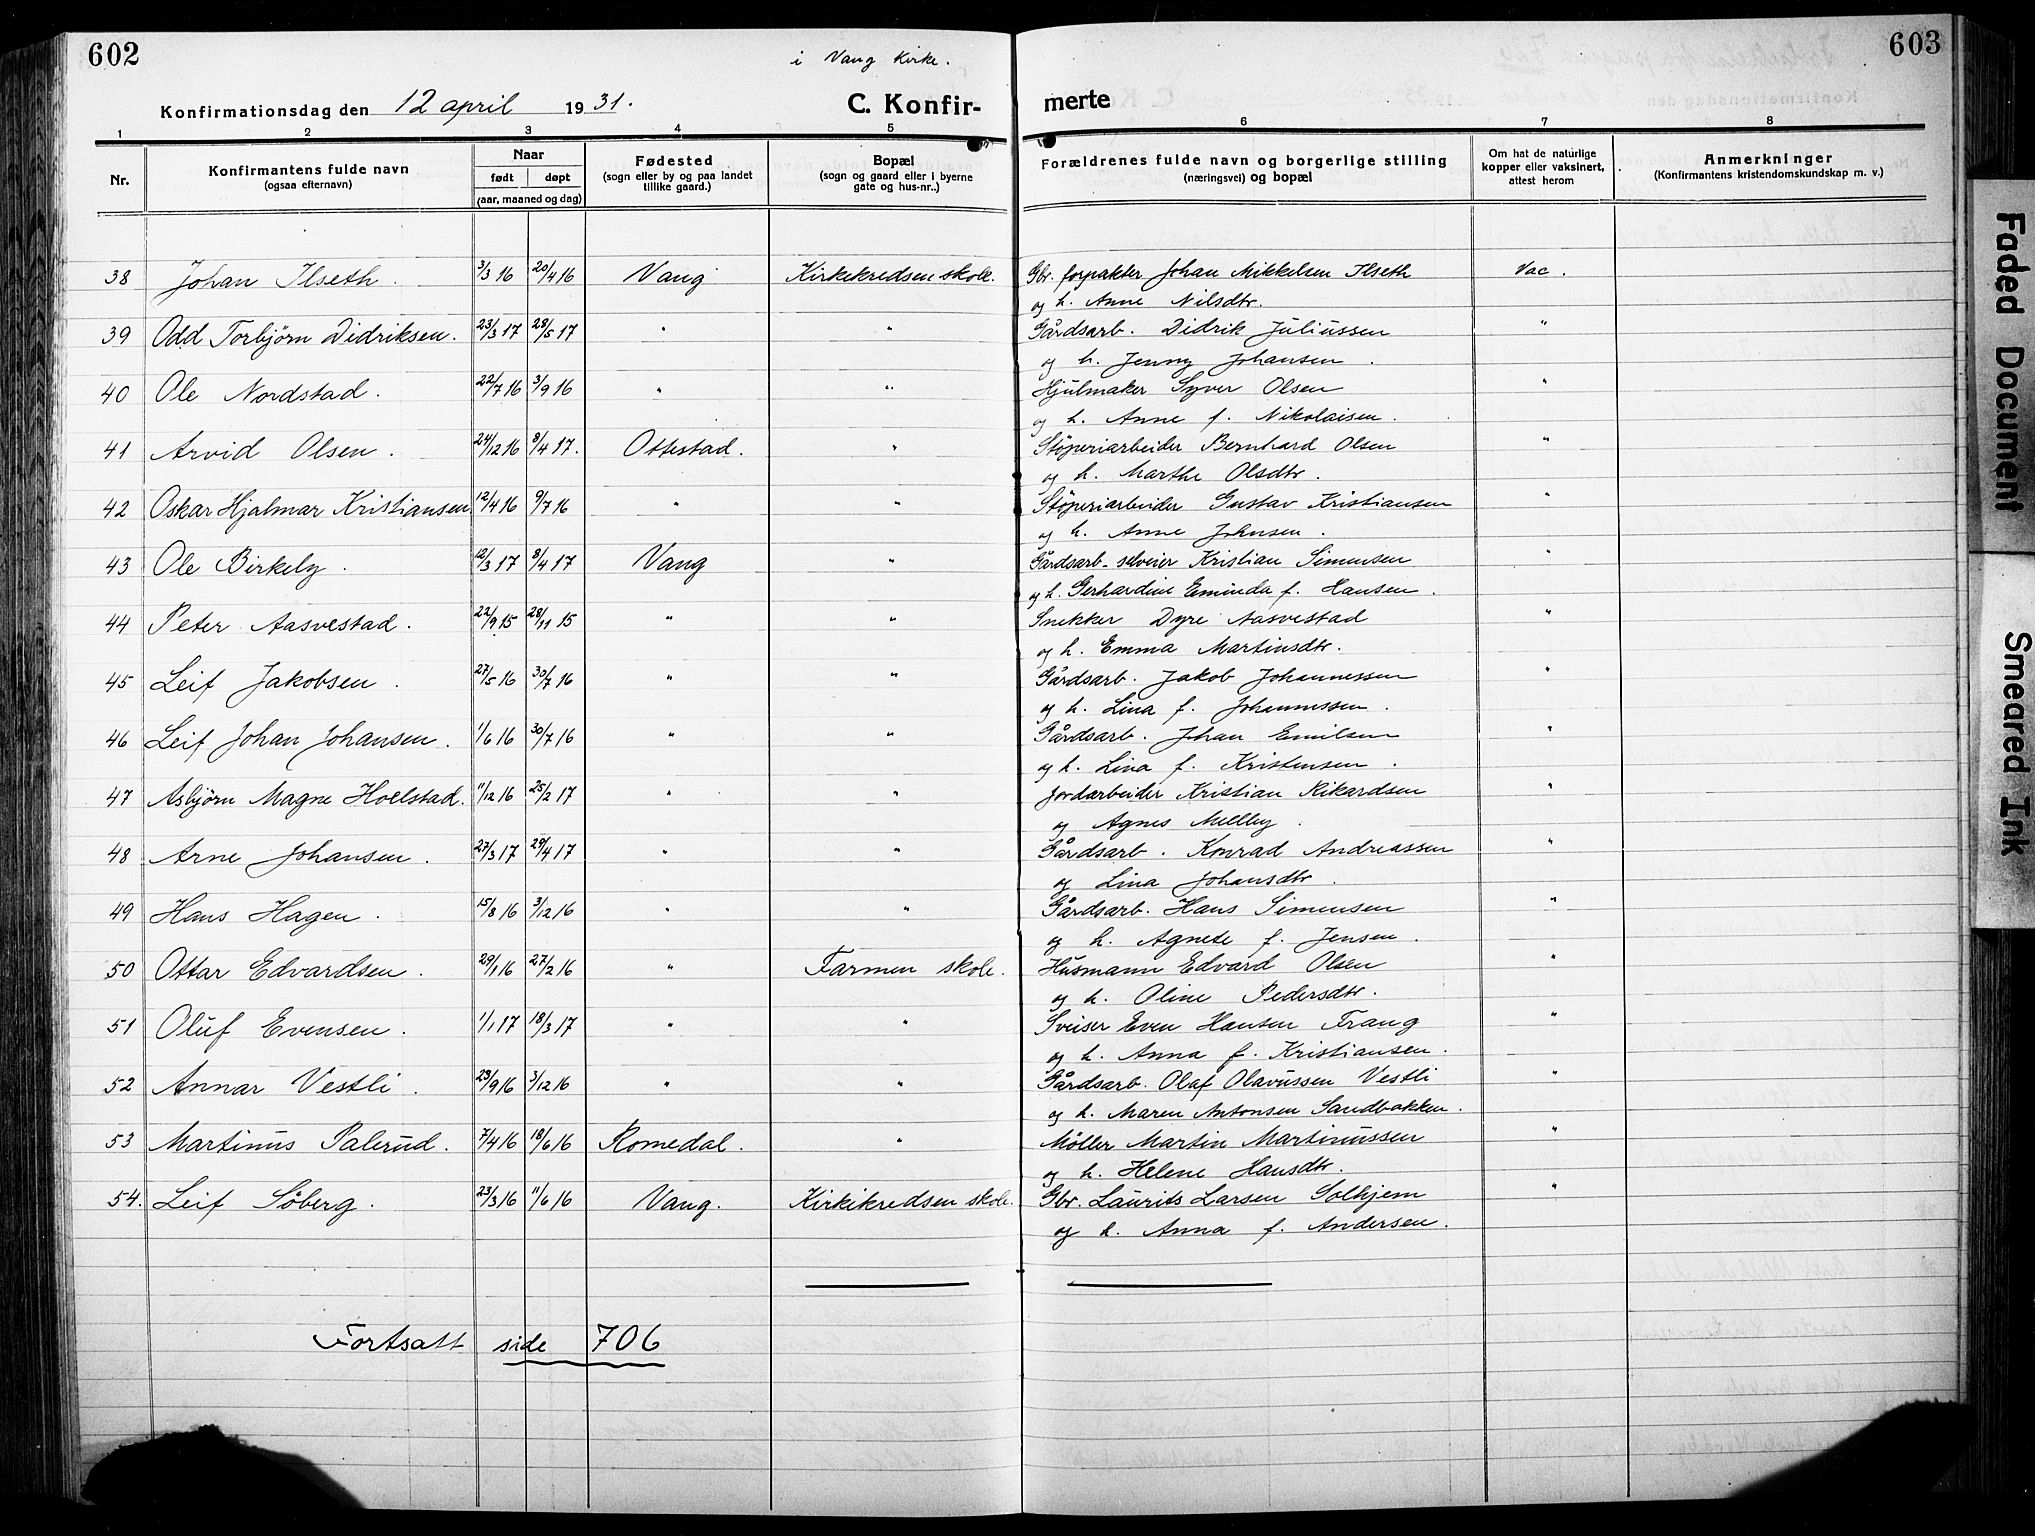 602
i Vang Kirke.
Konfirmationsdag den 12 april 1931.
C. Konfir-
1 2 3 4 5
Nr.
Konfirmantens fulde navn
(ogsaa efternavn)
Naar
født døpt
(aar, maaned og dag)
Fødested
(sogn eller by og paa landet
tillike gaard.)
Bopæl
(sogn og gaard eller i byerne
gate og hus-nr..)
38 Johan Ilseth. 3/3 16 20/4 16 Vang Kirkekredsen skole.
39 Odd Torbjørn Didriksen. 23/3 17 28/5 17 " "
40 Ole Nordstad. 22/7 16 3/9 16 " "
41 Arvid Olsen. 24/12 16 8/4 17. Ottestad. "
42 Oskar Hjalmar Kristiansen 12/4 16 9/7 16 " "
43 Ole Birkely. 12/3 17 8/4 17 Vang "
44 Peter Aasvestad. 22/9 15 28/11 15 " "
45 Leif Jakobsen. 27/5 16 30/7 16 " "
46 Leif Johan Johansen. 1/6 16 30/7 16 " "
47 Asbjørn Magne Hoelstad. 11/12 16 25/2 17 " "
48 Arne Johansen. 27/3 17 29/4 17 " "
49 Hans Hagen. 15/8 16 3/12 16 " "
50 Ottar Edvardsen. 29/1 16 27/2 16 " Farmen skole.
51 Oluf Evensen. 1/1 17 18/3 17 " "
52 Annar Vestli. 23/9 16 3/12 16 " "
53 Martinus Palerud. 7/4 16 18/6 16 Romedal. "
54. Leif Söberg. 23/3 16 11/6 16 Vang. Kirkikredsen skole.
Fortsatt side 706
603
merte
6 7 8
Forældrenes fulde navn og borgerlige stilling
(næringsvei) og bopæl
Om hat de naturlige
kopper eller vaksinert,
attest herom
Anmerkninger
(Konfirmantens kristendomskundskap m. v.)
Gbr. forpakter Johan Mikkelsen Ilseth Vac.
og h. Anne Nilsdtr.
Gårdsarb. Didrik Juliussen "
og h. Jenny Johansen.
Hjulmaker Syver Olsen "
og h. Anne f. Nikolaisen.
Støperiarbeider Bernhard Olsen "
og h. Marthe Olsdtr.
Støperiarbeider Gustav Kristiansen "
og h. Anne Johnsen.
Gårdsarb. Kristian Simensen "
og h. Gerhardine Eminda f. Hansen.
Snekker Dyre Aasvestad "
og h. Emma Martinsdtr.
Gårdsarb. Jakob Johannessen "
og h. Lina f. Johannessen.
Gårdsarb. Johan Emilsen "
og h. Lina f. Kristensen.
Jordarbeider Kristian Rikardsen "
og Agnes Melby.
Gårdsarb. Konrad Andreassen "
og Lina Johansdtr.
Gårdsarb. Hans Simensen "
og h. Agnete f. Jensen.
Husmann Edvard Olsen "
og h. Oline Pedersdtr.
Sveiser Even Hansen Frang "
og h. Anna f. Kristiansen.
Gårdsarb. Olaf Olavussen Vestli "
og h. Maren Antonsen Sandbakken.
Möller Martin Martinussen "
og h. Helene Hansdtr.
Gbr. Laurits Larsen Solhjem "
og h. Anna f. Andersen.
Faded Document
Smeared Ink